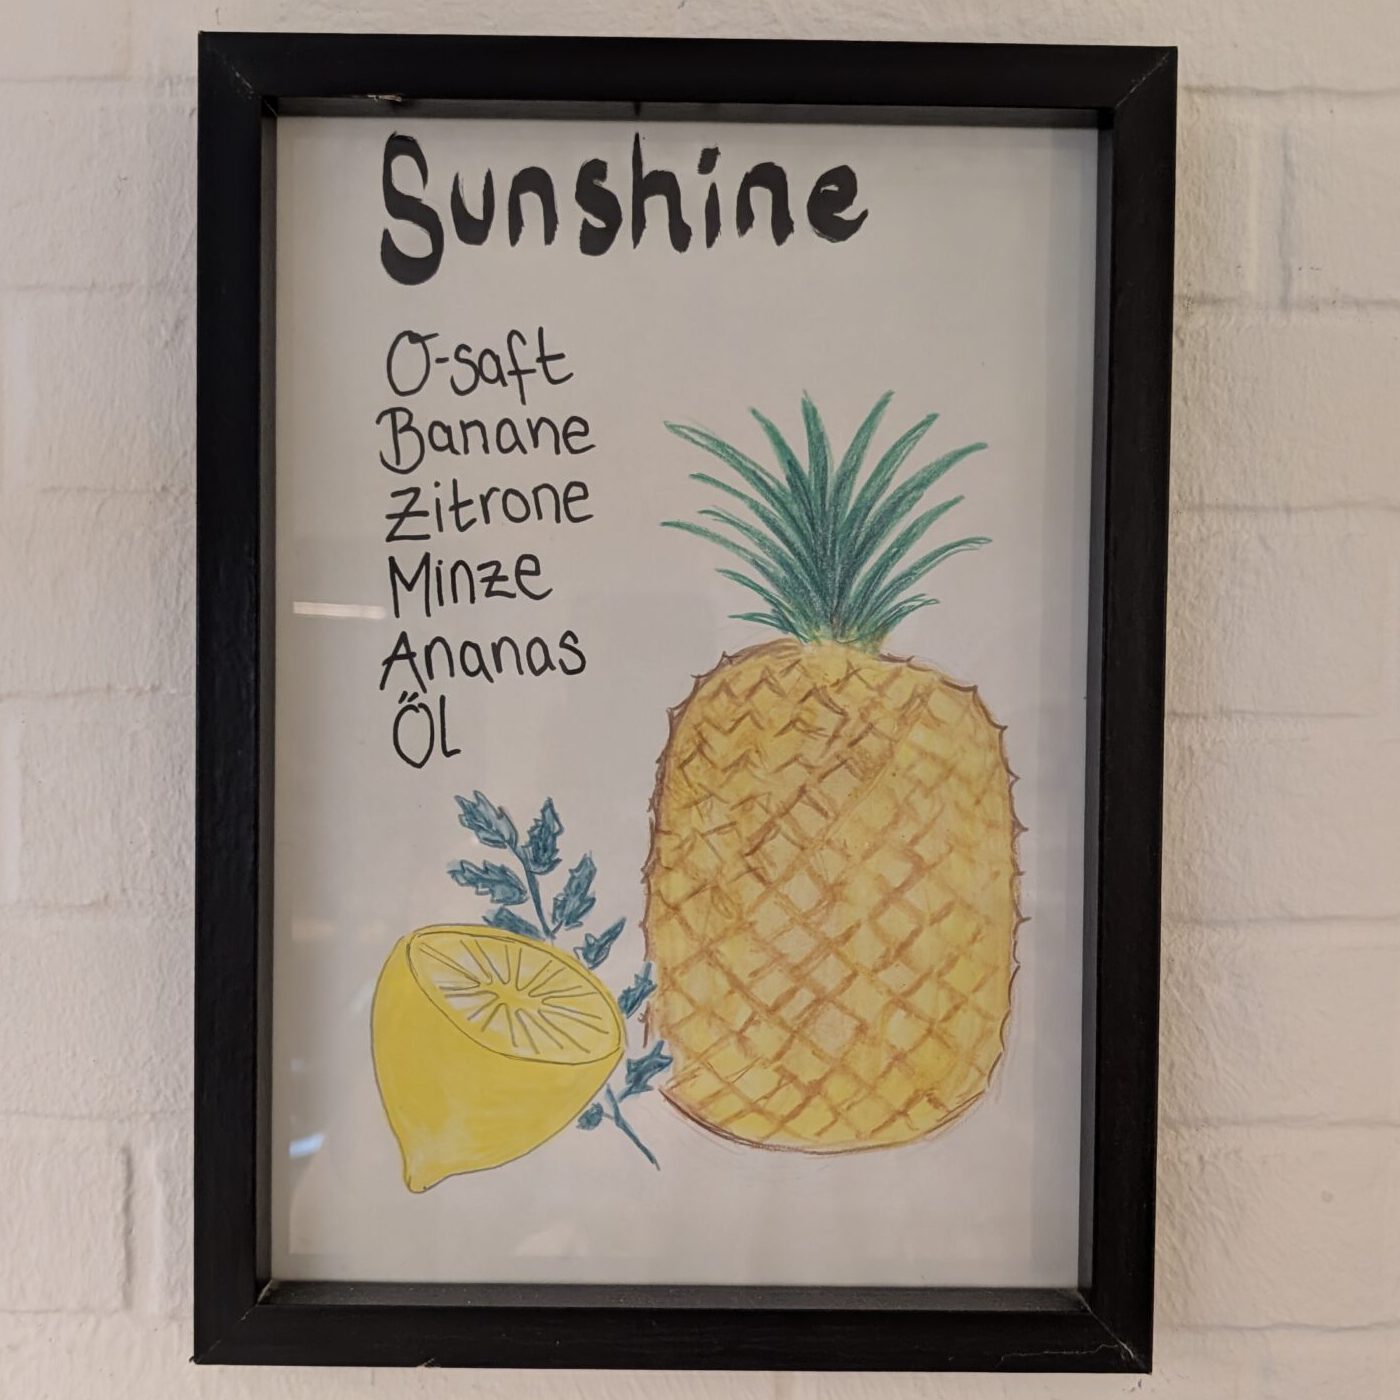 Sunshine
O-saft
Banane
Zitrone
Minze
Ananas
Öl